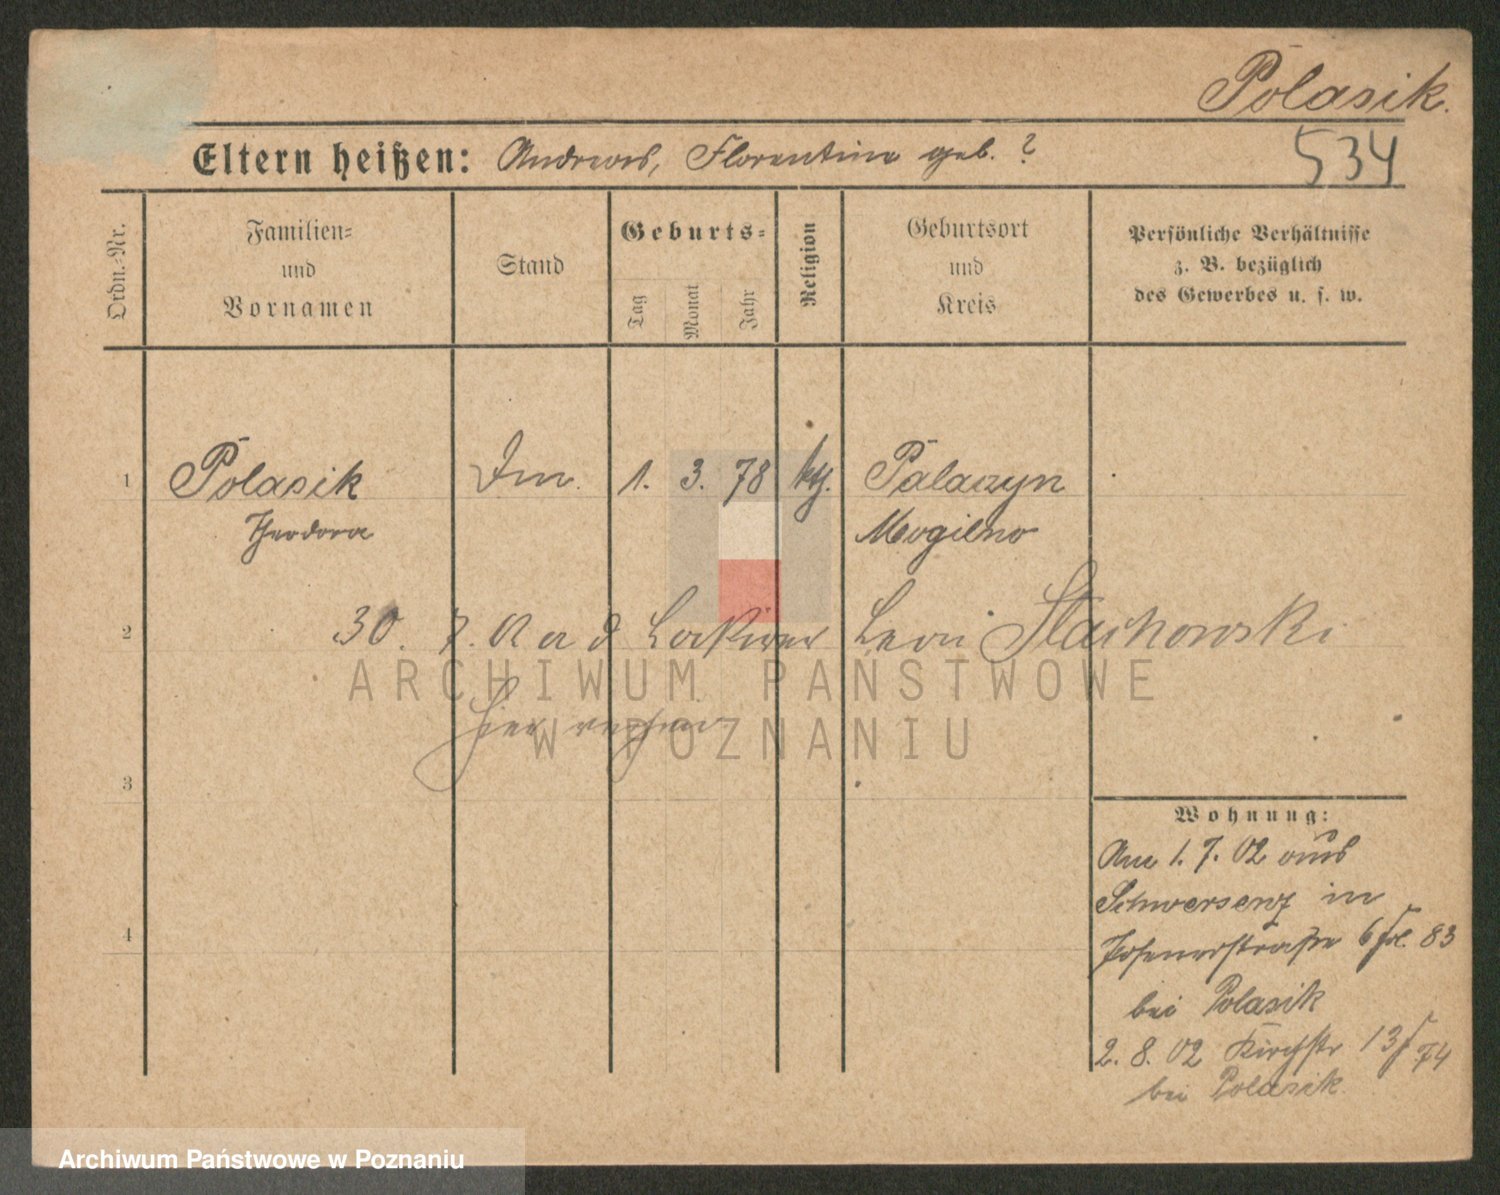 Polasik.
534
Eltern heißen: Andreas, Florentine geb. ?
Ordn.-Nr.
Familien-
und
Vornamen
Stand
Geburts-
Tag
Monat
Jahr
Religion
Geburtsort
und
Kreis
Persönliche Verhältnisse
z. B. bezüglich
des Gewerbes u. s. w.
1 Polasik 1. 3. 78 kth. Palaczyn
Theodora Mogilno
2 30. 7. Leon Stachowski
hier
ARCHIWUM PAŃSTWOWE
W POZNANIU
3
Wohnung:
Am 1. 7. 02 aus
Schwersenz in
4
Posenerstraße 6 fol. 83
bei Polasik
2. 8. 02 Kirchstr 13 f 74
bei Polasik
Archiwum Państwowe w Poznaniu